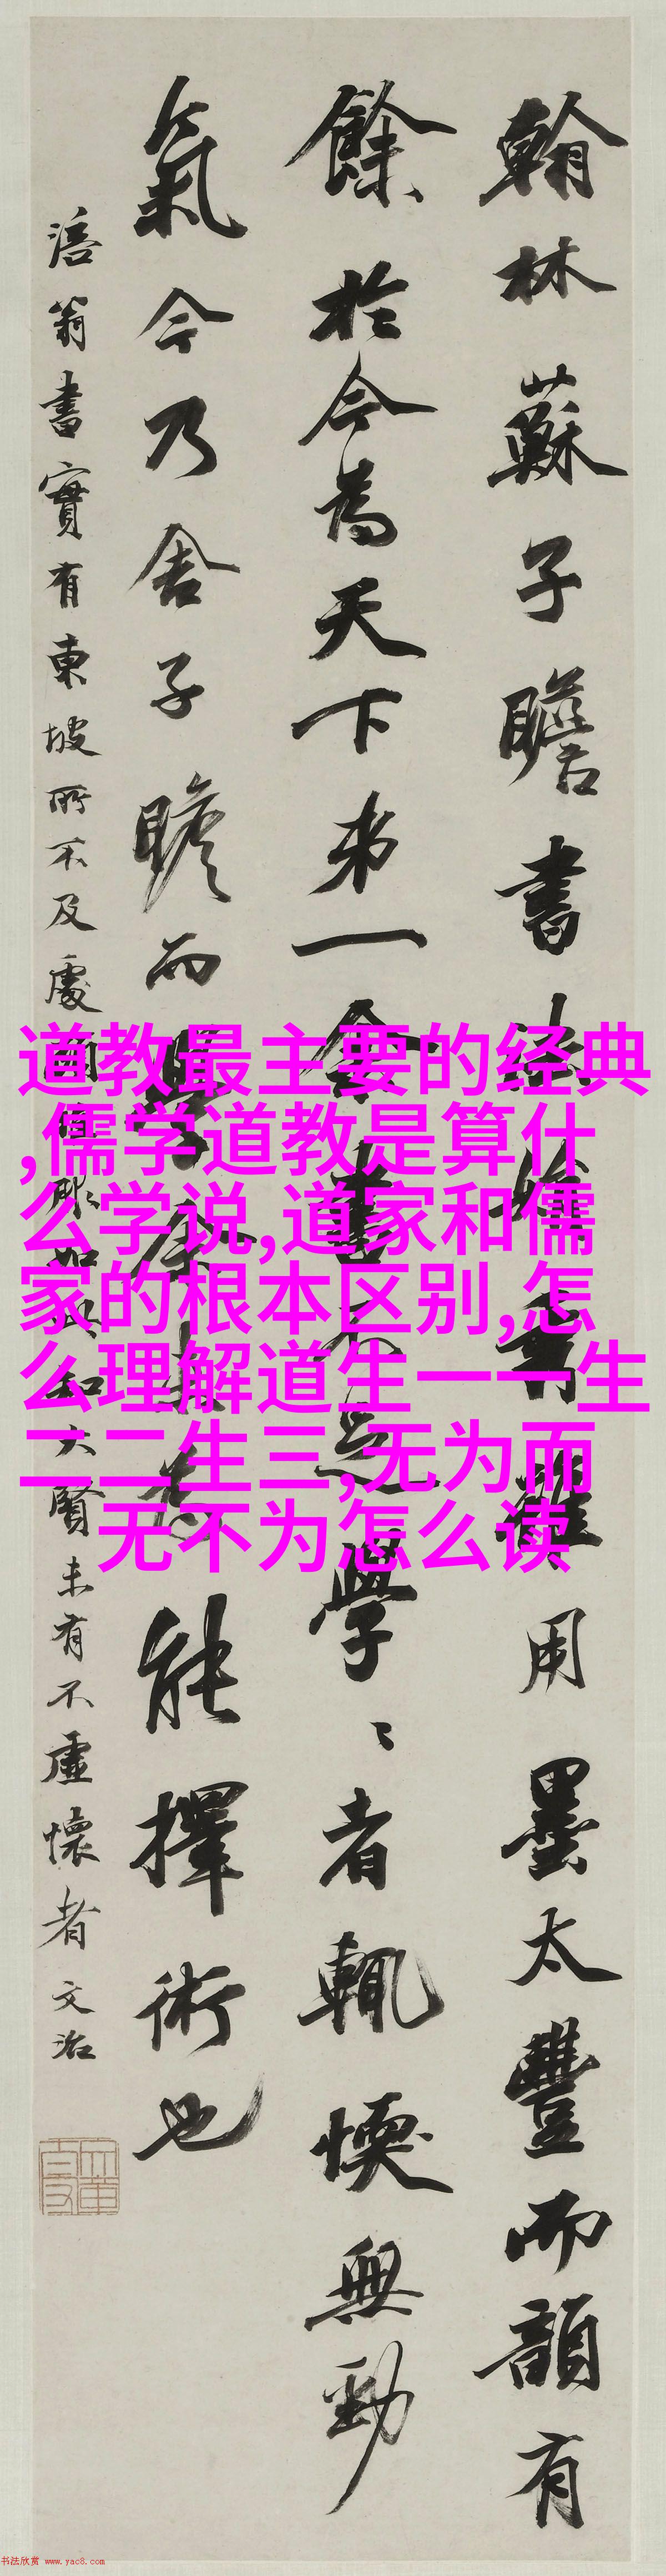 翰林蘇子瞻書法娟秀雖用墨太豐而韻有
餘於今為天下第一余書不足學〻者輒愞無勁
氣今乃舍子瞻而學余未為能擇術也
涪翁書實有東坡所不及處 如此知大賢未有不虛懷者文治
道教最主要的经典
,儒学道教是算什
么学说,道家和儒
家的根本区别,怎
么理解道生一一生
二二生三,无为而
无不为怎么读
书法欣赏 www.yac8.com